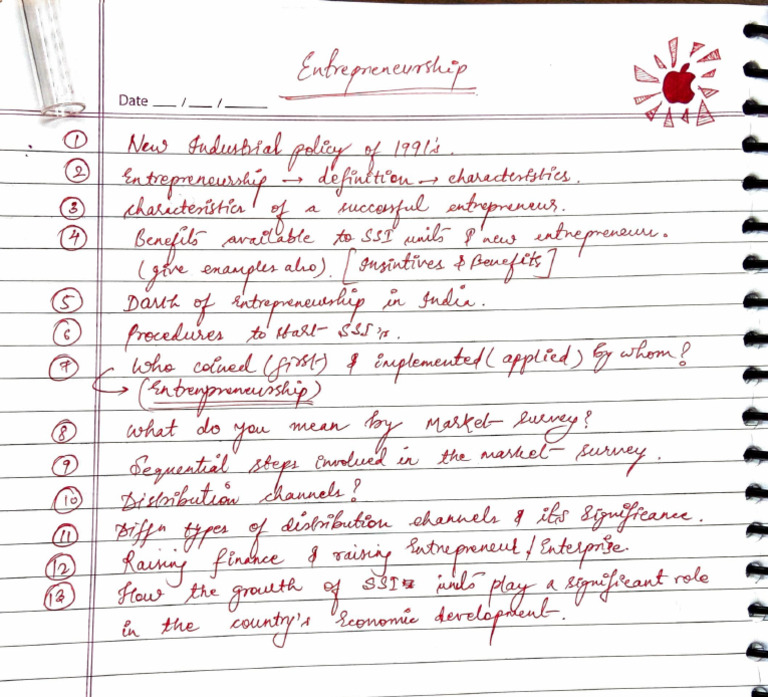 Entrepreneurship
Date __ / __ / ____
① New Industrial policy of 1991's.
② Entrepreneurship → definition → characteristics.
③ characteristics of a successful entrepreneur.
④ Benefits available to SSI units & new entrepreneur.
(give examples also). [Insintives & Benefits]
⑤ Darth of Entrepreneurship in India.
⑥ Procedures to start SSI's.
⑦ Who coined (first) & implemented (applied) by whom?
→ (Entrenpreneurship)
⑧ What do you mean by Market survey?
⑨ Sequential steps involved in the market survey.
⑩ Distribution channels?
⑪ Diffn types of distribution channels & its significance.
⑫ Raising finance & raising Entrepreneur / Enterprise.
⑬ How the growth of SSI units play a significant role
in the country's Economic development.